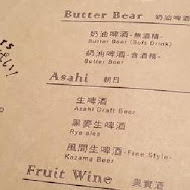 Butter Bear 奶油啤酒
奶油啤酒-無酒精-
Butter Beer (Soft Drink)
奶油啤酒-含酒精-
Butter Beer
Asahi 朝日
生啤酒
Asahi Draft Beer
黑麥生啤酒
Rye ales
風間生啤酒-Free Style-
Kazama Beer
Fruit Wine 果實酒